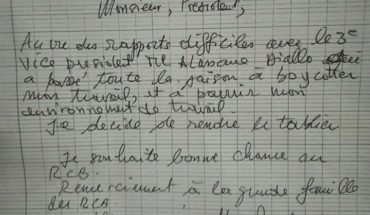 Monsieur, President,
Au vu des rapports difficiles avec le 3e
Vice president Mr Alassane Diallo qui
a passé toute la saison a boycotter
mon travail, et a pourrir mon
environnement de travail.
Je decide de rendre le tablier
Je souhaite bonne chance au
RCB.
Remerciement à la grande famille
des RCB.